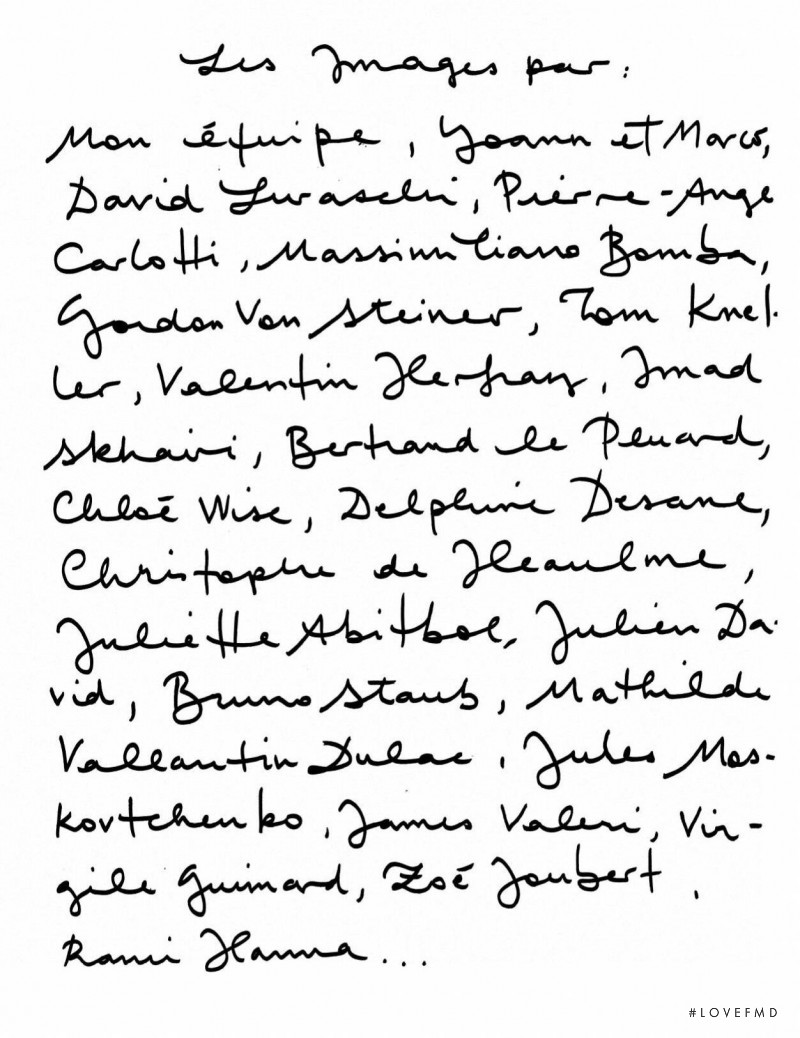 Les Images par :
Mon équipe, Yoann et Marco,
David Luraschi, Pierre-Ange
Carlotti, Massimiliano Bomba,
Gordon Von Steiner, Tom Knel-
ler, Valentin Herfray, Imad
Skhairi, Bertrand le Pluard,
Chloé Wise, Delphine Desane,
Christophe de Heaulme,
Juliette Abitbol, Julien Da-
vid, Bruno Staub, Mathilde
Vallantin Dulac, Jules Mos-
kovtchenko, James Valeri, Vir-
gile Guinard, Zoé Joubert,
Rami Hanna...
#LOVEFMD